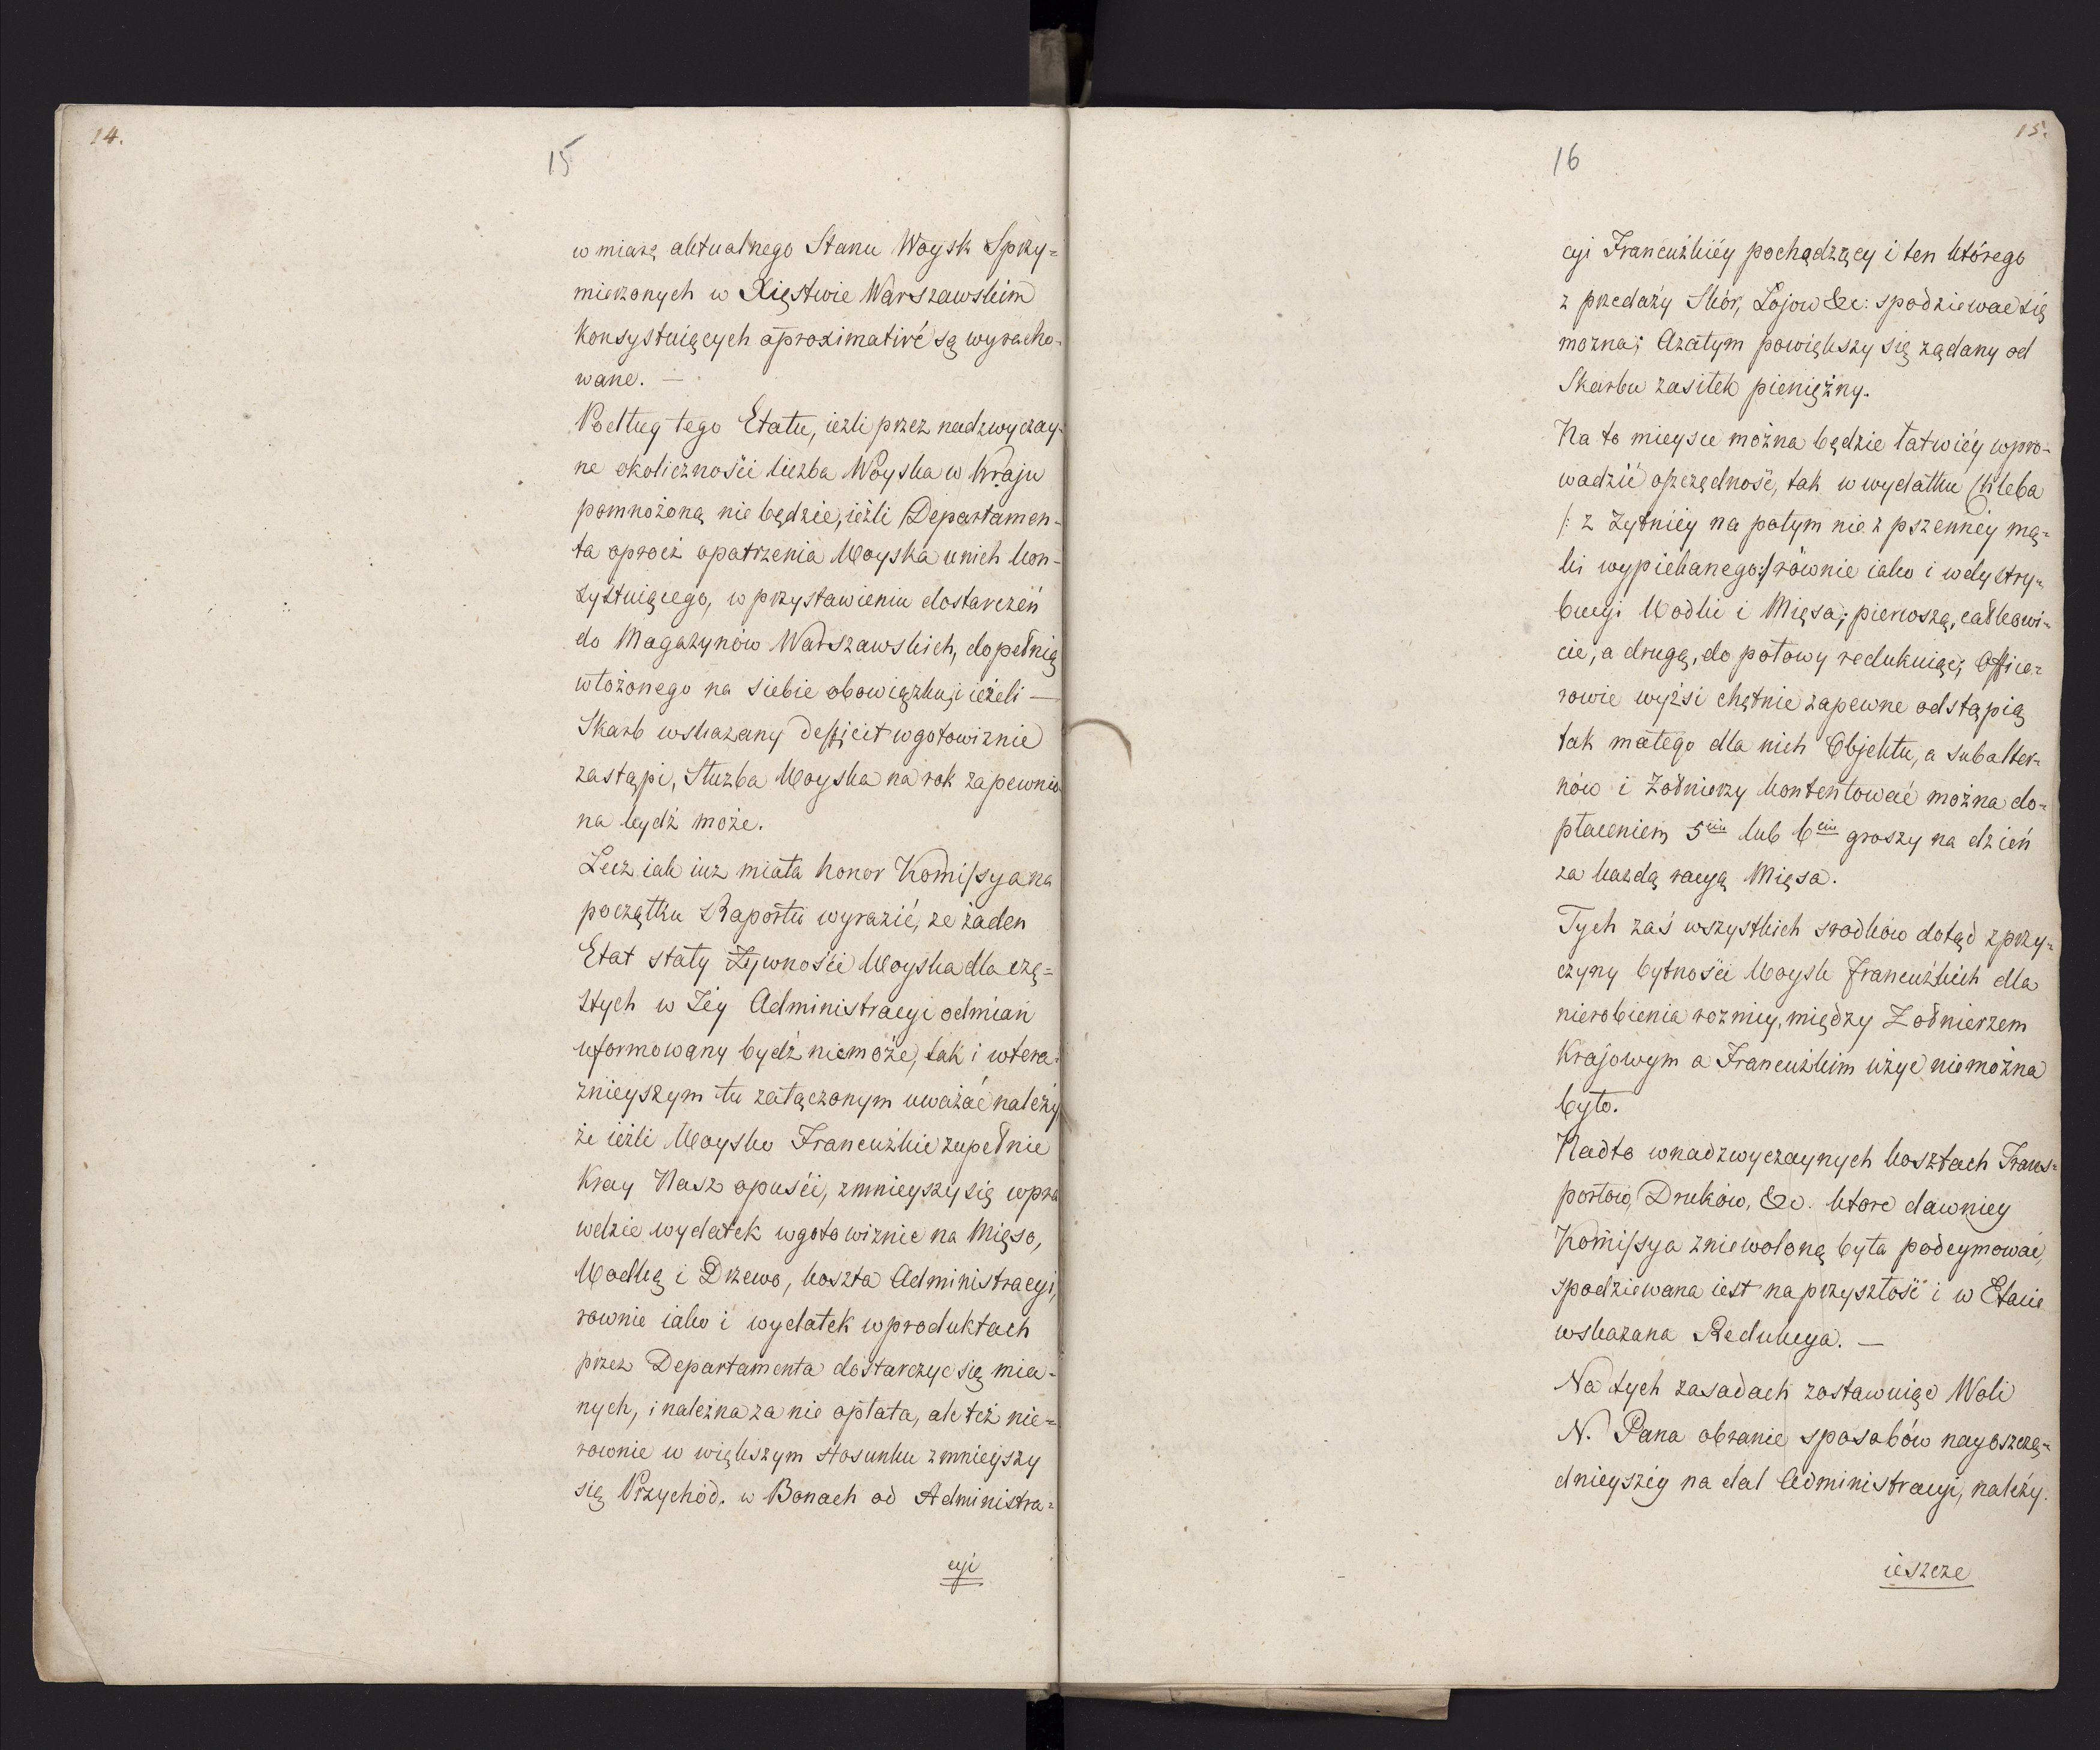 14.
15
w miarę aktualnego Stanu Woysk Sprzy=
mierzonych w Xięstwie Warszawskim
Konsystuiących aproximativé są wyracho-
wane. —
Podług tego Etatu, ieźli przez nadzwyczay-
ne okolicznośći liczba Woyska w kraju
pomnożoną nie będzie, ieźli Departamen-
ta oprócz opatrzenia Woyska unich kon-
systuiącego, w przystawieniu dostarczeń
do Magazynów Warszawskich, dopełnią
włożonego na siebie obowiązku, i ieżeli —
Skarb wskazany deficit wgotowiznie
zastąpi, Służba Woyska na rok zapewnio-
na bydź może.
Lecz iak iuż miała honor Kommissya na
początku Raportu wyrazić, ze żaden
Etat stały Żywnośći Woyska dla czę=
stych w Jéy Administracyi odmian
uformowany bydź niemoże, tak i wtera-
znieyszym tu załączonym uważać należy
że ieźli Woysko Francuźkie zupełnie
Kray Nasz opuśći, zmnieyszy się wpra
wdzie wydatek wgotowiznie na Mięso,
Wodkę i Drzewo, koszta Administracyi,
rownie iako i wydatek wproduktach
przez Departamenta dostarczyc się mia-
nych, i należna za nie opłata, ale też nie=
rownie w większym stosunku zmnieyszy
się Przychód. w Bonach od Administra=
cyi
15.
16
cyi Francuźkiéy pochądzący i ten którego
z przedaży Skór, Łojow &c: spodziewac się
mozna; Azatym powiększy się ządany od
Skarbu zasiłek pieniężny.
Na to mieysce można będzie łatwiéy wpro-
wadzić oszczędność, tak w wydatku Chleba
/: z żytniéy na potym nie z pszennéy mą-
ki wypiekanego:/ równie iako i wdystry-
bucyi Wodki i Mięsa; pierwszą, całkowi-
cie, a drugą, do połowy redukuiąc; Office-
rowie wyżsi chętnie zapewne odstąpią
tak małego dla nich Objektu, a subalter-
nów i Żołnierzy kontentować można do=
płaceniem 5ciu lub 6ciu groszy na dzień
za kazdą racyą Mięsa.
Tych zaś wszystkich srodków dotąd zprzy=
czyny bytnośći Woysk Francuźkich dla
nierobienia roznicy, między Żołnierzem
Krajowym a Francuźkim użyc niemożna
było.
Nadto wnadzwyczaynych kosztach Trans=
portow, Druków, &c. ktore dawniey
Kommissya zniewoloną była podeymować,
spodziewana iest na przyszłość i w Etacie
wskazana Redukcya. —
Na tych zasadach zostawuiąc Woli
N. Pana obranie sposobów nayoszczę-
dnieyszéy na dal Administracyi, należy.
ieszcze